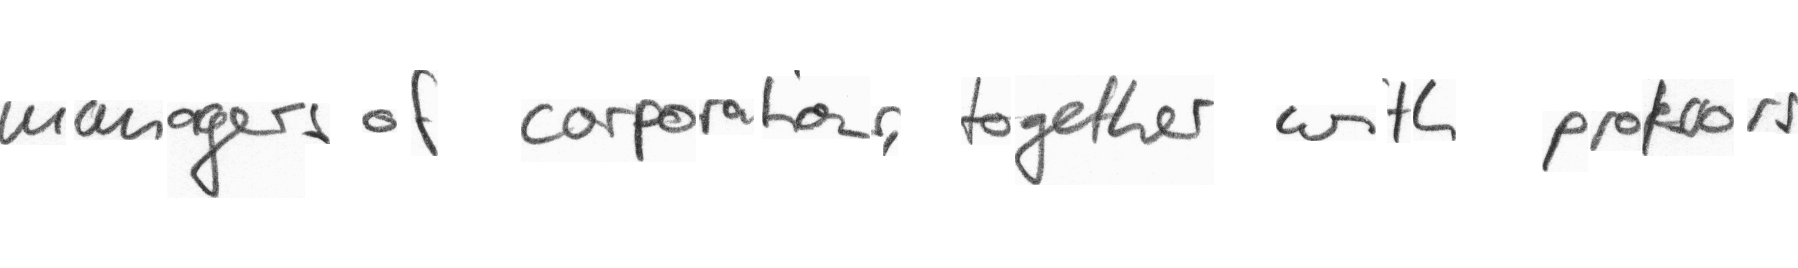 managers of corporations, together with professors